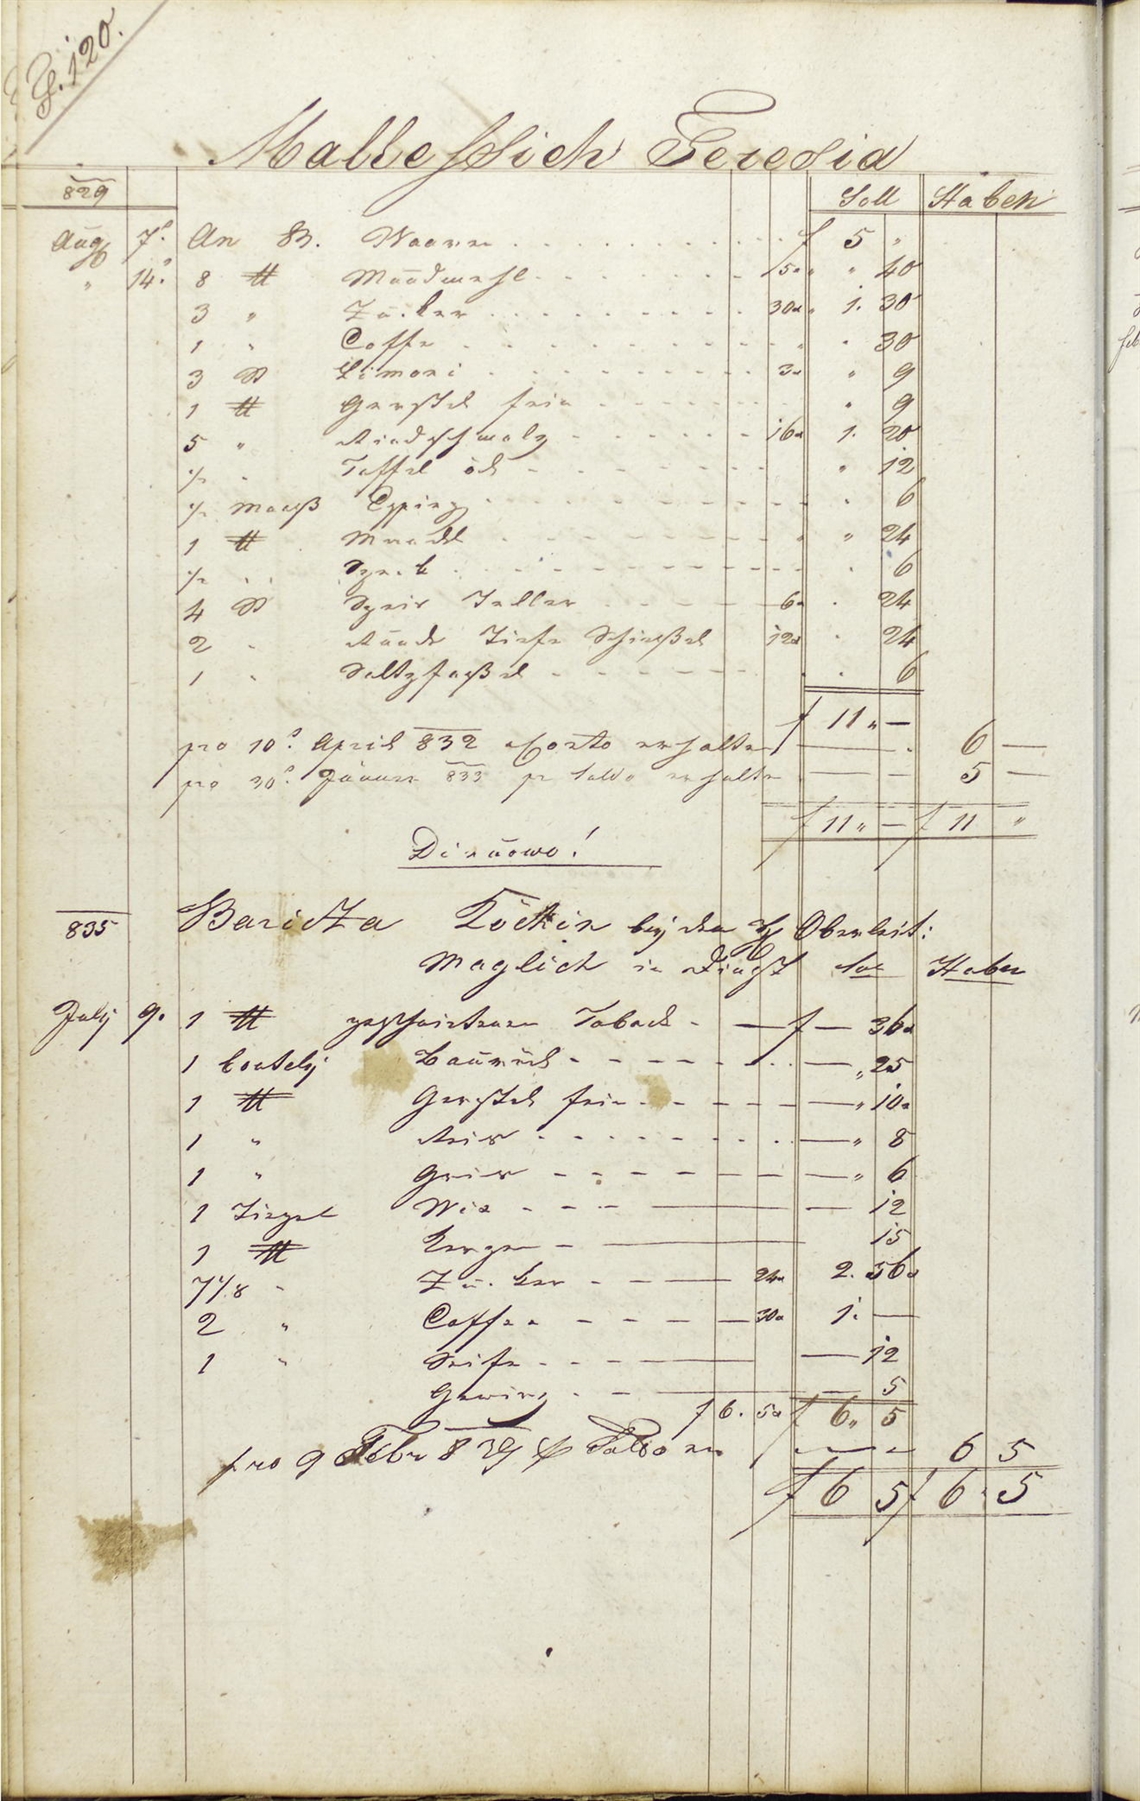 120.
Mallesſich Teresia
829 Soll Haben
Aug 7. An B. Waaren f 5 "
" 14. 8 ℔ Mundmehl 5x " " 40
3 " Zucker 30x " 1. 30
1 " Coffe " 30
3 St Limoni 3x " 9
1 ℔ Gerstel fein " 9
5 " Rindschmalz 16x 1. 20
1/2 Taffel öl " 12
1/2 Maaß Essig " 6
1 ℔ Mandel " 24
1/2 " Speck " 6
4 St Speis Teller 6x " 24
2 " Runde Tiefe Schüßel 12x " 24
1 " Saltzfaßel " 6
f 11 " —
pro 10. April 832 a Conto erhalten — 6 —
pro 30. Jänner 833 pr Saldo erhalten — — 5 —
f 11 " — f 11 "
Diruowo!
835 Baricza Köchin bey den H Oberleit:
Maglich in Dinst Soll Haben
July 9. 1 ℔ geschnittenen Taback — f — 36x
1 Boutely Baumöl — " 25
1 ℔ Gerstel fein — " 10x
1 " Reis — " 8
1 " Gries — " 6
1 Tiegel Wix — 12
1 ℔ Kerzen — 15
7 1/8 " Zucker — 24x 2. 56x
2 " Coffee — 30x 1. —
1 " Seife — 12
Gewürz — 5
f 6. 5x f 6 " 5
pro 9 Febr 839 pr Saldo — — 6 5
f 6 5 f 6 " 5